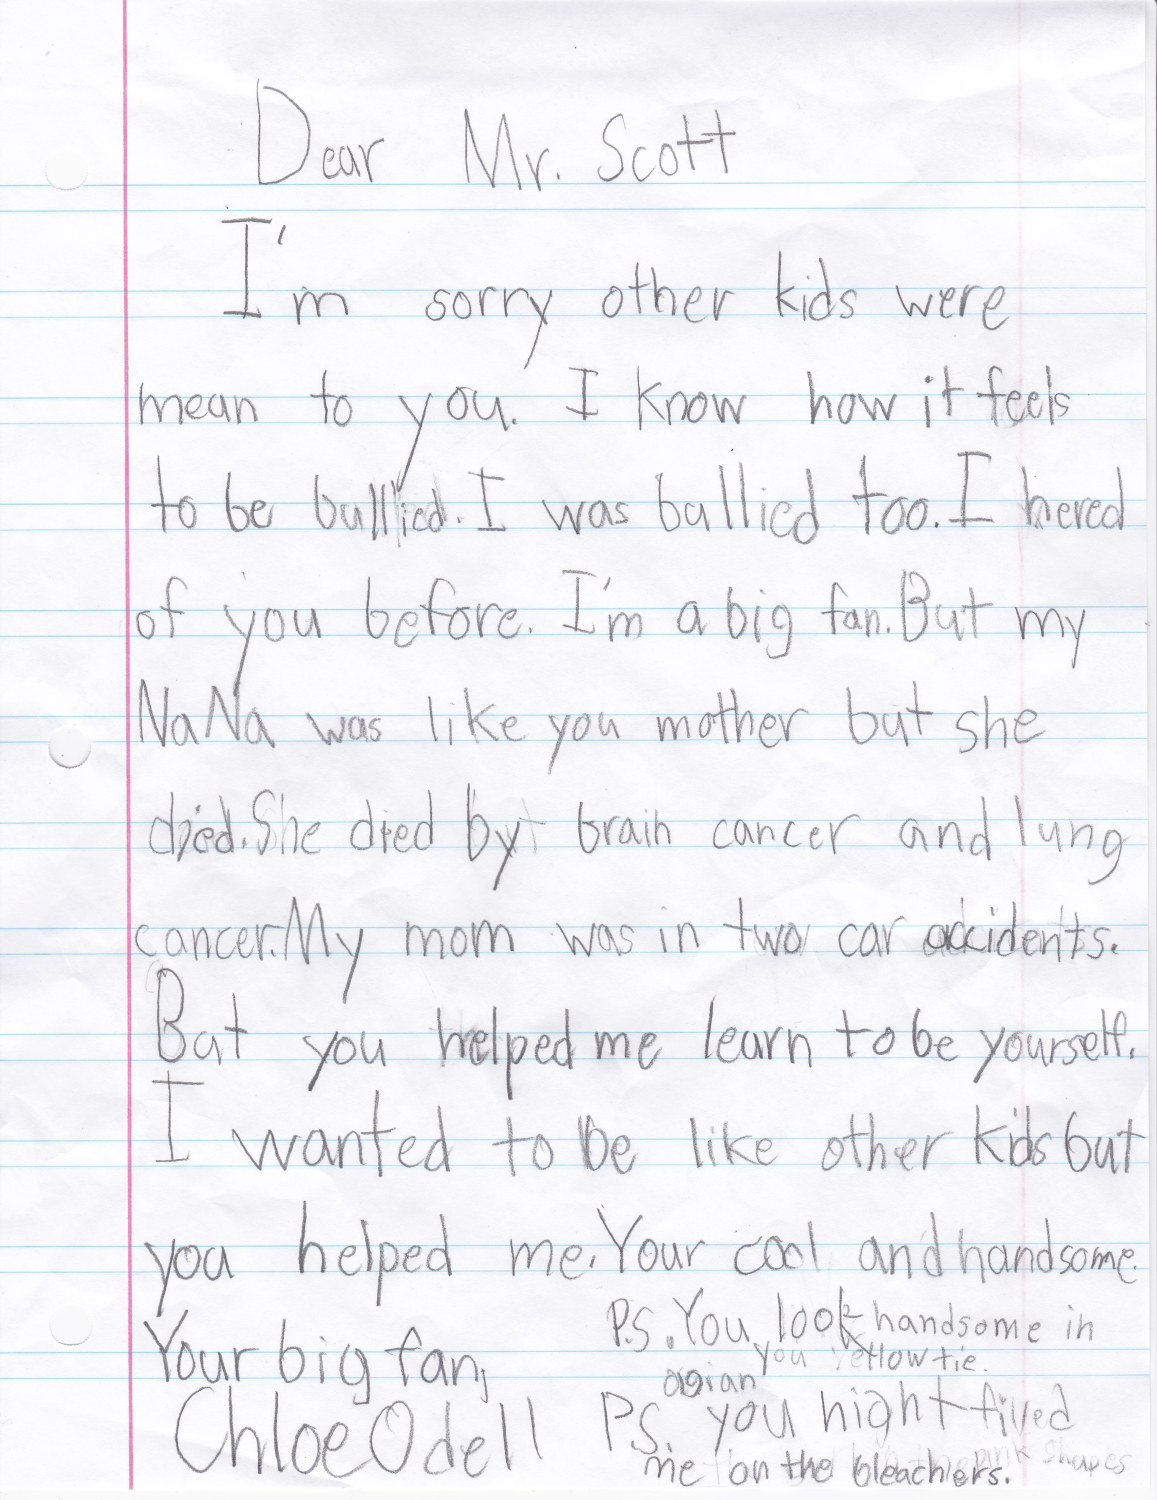 Dear Mr. Scott
I'm sorry other kids were
mean to you. I know how it feels
to be bullied. I was bullied too. I hered
of you before. I'm a big fan. But my
NaNa was like you mother but she
died. She died by brain cancer and lung
cancer. My mom was in two car accidents.
But you helped me learn to be yourself.
I wanted to be like other kids but
you helped me. Your cool and handsome.
Your big fan,
Chloe Odell
P.S. You look handsome in
you yellow tie.
P.S. you might
me on the bleachers.
pink shapes